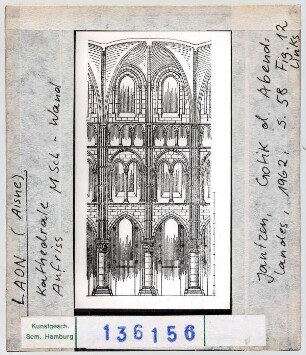 LAON (Aisne)
Kathedrale M.Sch-Wand
Aufriss
Jantzen, Gotik d. Abend-
landes, 1962, S. 58 Fig. 12
links
Kunstgesch.
Sem. Hamburg
136156